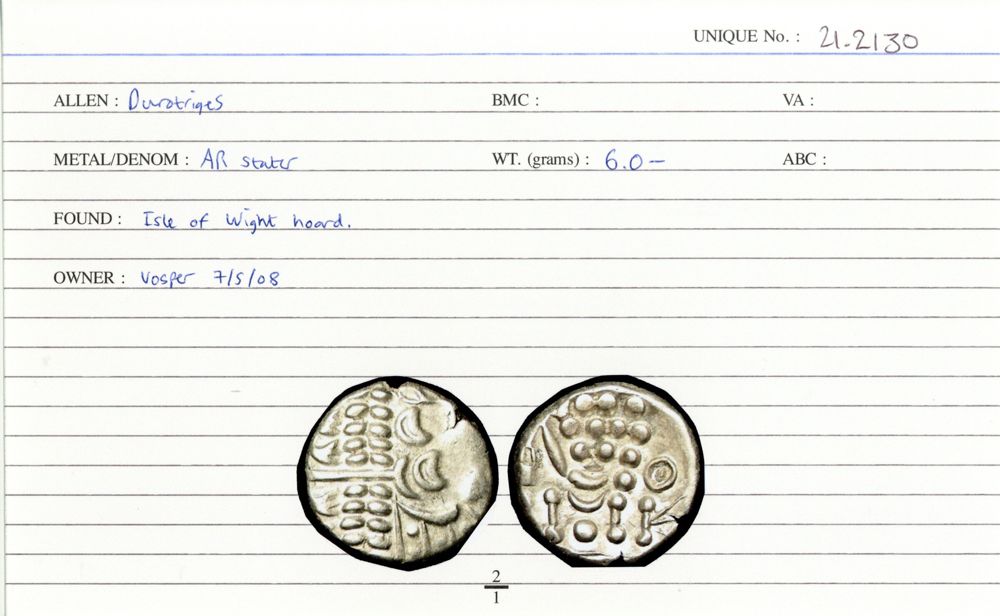 UNIQUE No. : 21.2130
ALLEN : Durotriges BMC : VA :
METAL/DENOM : AR stater WT. (grams) : 6.0— ABC :
FOUND : Isle of Wight hoard.
OWNER : Vosper 7/5/08
2
1